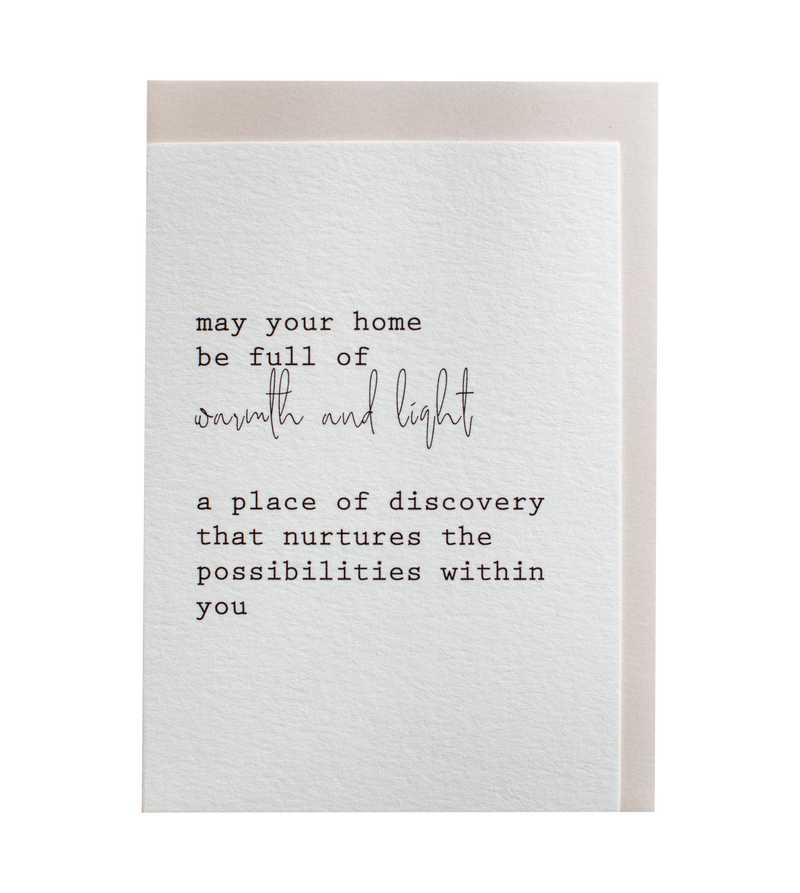 may your home
be full of
warmth and light
a place of discovery
that nurtures the
possibilities within
you